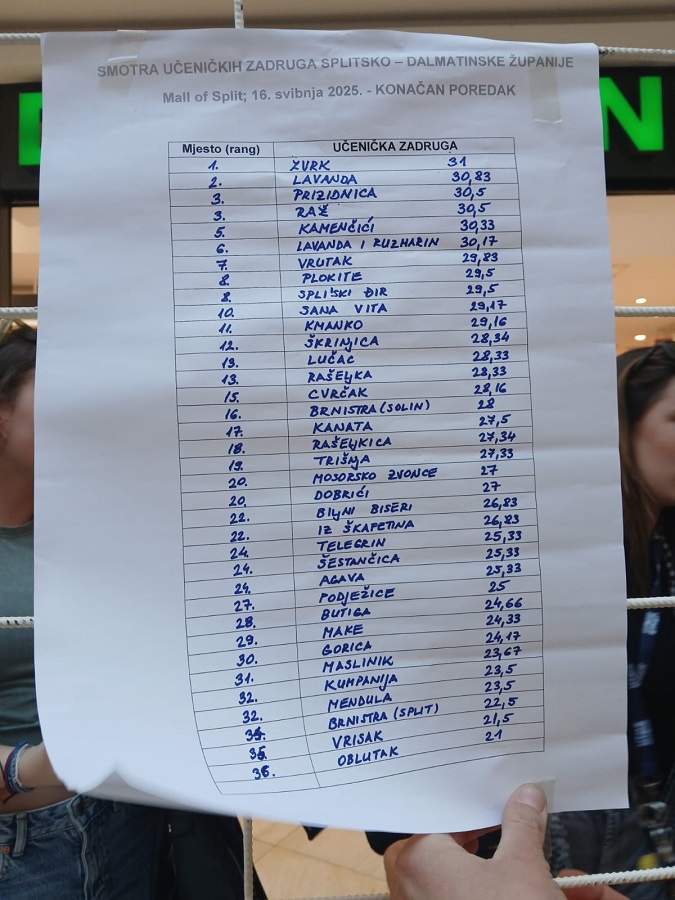 SMOTRA UČENIČKIH ZADRUGA SPLITSKO – DALMATINSKE ŽUPANIJE
Mall of Split; 16. svibnja 2025. - KONAČAN POREDAK
Mjesto (rang) UČENIČKA ZADRUGA
1. ŽVRK 31
2. LAVANDA 30,83
3. PRIZIDNICA 30,5
3. RAŽ 30,5
5. KAMENČIĆI 30,33
6. LAVANDA I RUZMARIN 30,17
7. VRUTAK 29,83
8. PLOKITE 29,5
8. SPLI'SKI ĐIR 29,5
10. SANA VITA 29,17
11. KMANKO 29,16
12. ŠKRINJICA 28,34
13. LUČAC 28,33
13. RAŠELJKA 28,33
15. CVRČAK 28,16
16. BRNISTRA (SOLIN) 28
17. KANATA 27,5
18. RAŠELJKICA 27,34
19. TRIŠNJA 27,33
20. MOSORSKO ZVONCE 27
20. DOBRIĆI 27
22. BILJNI BISERI 26,83
22. IZ ŠKAFETINA 26,83
24. TELEGRIN 25,33
24. ŠESTANČICA 25,33
24. AGAVA 25,33
27. PODJEŽICE 25
28. BUTIGA 24,66
29. MAKE 24,33
30. GORICA 24,17
31. MASLINIK 23,67
32. KUMPANIJA 23,5
32. MENDULA 23,5
34. BRNISTRA (SPLIT) 22,5
35. VRISAK 21,5
36. OBLUTAK 21
N